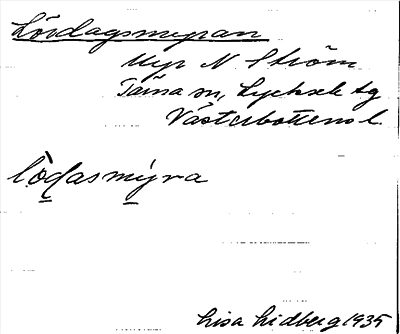 Lördagsmyran
Myr N Ström
Tärna sn, Lycksele tg
Västerbottens l.
lò̱dasmy̱ra
Lisa Lidberg 1935